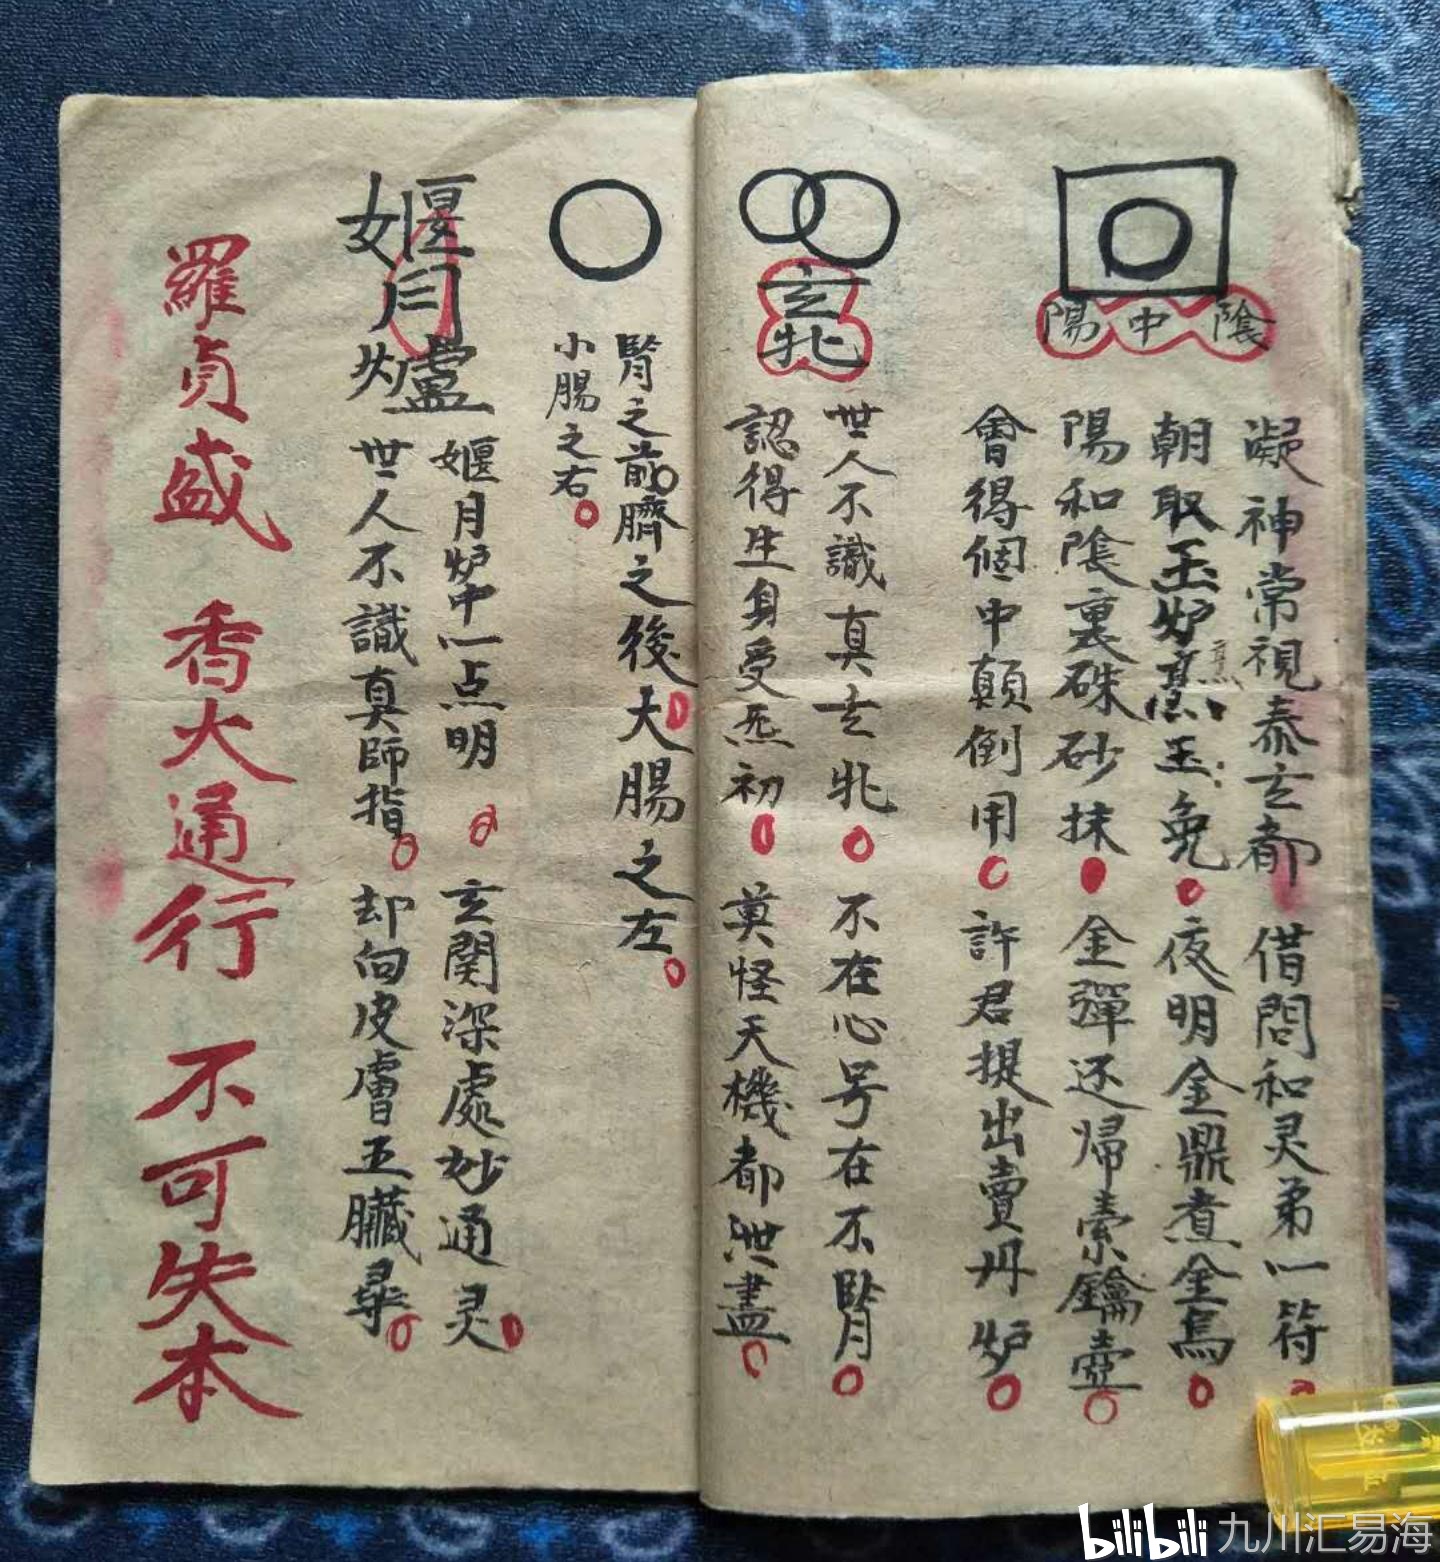 陽中陰
凝神常視泰玄都 借問和灵弟一符
朝取玉炉烹玉兔 夜明金鼎煮金烏
烹
陽和陰裏硃砂抹 金彈还帰索鑰壺
會得個中顛倒用 許君提出賣丹炉
玄牝
世人不識真玄牝 不在心号在不腎
認得生身受炁初 莫怪天機都泄盡
腎之前臍之後大腸之左
小腸之右
媐月炉中一点明 玄関深處妙通灵
世人不識真師指 却向皮膚五臟尋
羅貞盛 香火通行 不可失本
bilibili 九川汇易海